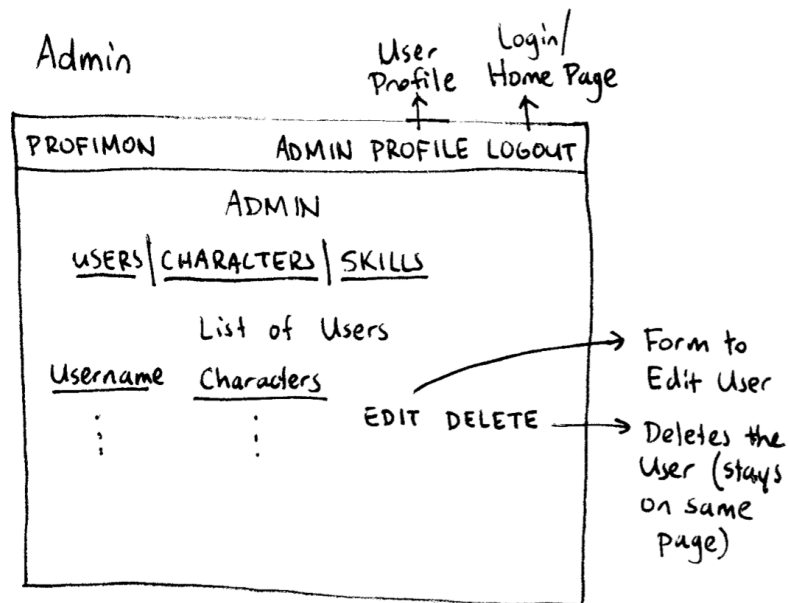 Admin
User
Profile
Login/
Home Page
PROFIMON ADMIN PROFILE LOGOUT
ADMIN
USERS | CHARACTERS | SKILLS
List of Users
Username Characters
EDIT DELETE
Form to
Edit User
Deletes the
User (stays
on same
page)